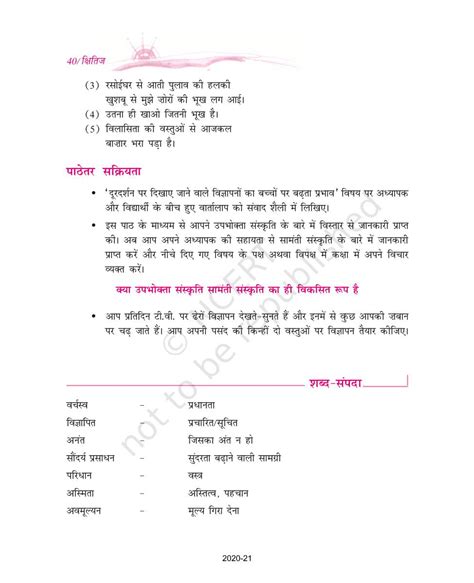 40/क्षितिज
(3) रसोईघर से आती पुलाव की हलकी
खुशबू से मुझे ज़ोरों की भूख लग आई।
(4) उतना ही खाओ जितनी भूख है।
(5) विलासिता की वस्तुओं से आजकल
बाज़ार भरा पड़ा है।
पाठेतर सक्रियता
• 'दूरदर्शन पर दिखाए जाने वाले विज्ञापनों का बच्चों पर बढ़ता प्रभाव' विषय पर अध्यापक
और विद्यार्थी के बीच हुए वार्तालाप को संवाद शैली में लिखिए।
• इस पाठ के माध्यम से आपने उपभोक्ता संस्कृति के बारे में विस्तार से जानकारी प्राप्त
की। अब आप अपने अध्यापक की सहायता से सामंती संस्कृति के बारे में जानकारी
प्राप्त करें और नीचे दिए गए विषय के पक्ष अथवा विपक्ष में कक्षा में अपने विचार
व्यक्त करें।
क्या उपभोक्ता संस्कृति सामंती संस्कृति का ही विकसित रूप है
• आप प्रतिदिन टी.वी. पर ढेरों विज्ञापन देखते-सुनते हैं और इनमें से कुछ आपकी ज़बान
पर चढ़ जाते हैं। आप अपनी पसंद की किन्हीं दो वस्तुओं पर विज्ञापन तैयार कीजिए।
शब्द-संपदा
वर्चस्व – प्रधानता
विज्ञापित – प्रचारित/सूचित
अनंत – जिसका अंत न हो
सौंदर्य प्रसाधन – सुंदरता बढ़ाने वाली सामग्री
परिधान – वस्त्र
अस्मिता – अस्तित्व, पहचान
अवमूल्यन – मूल्य गिरा देना
© NCERT
not to be republished
2020-21